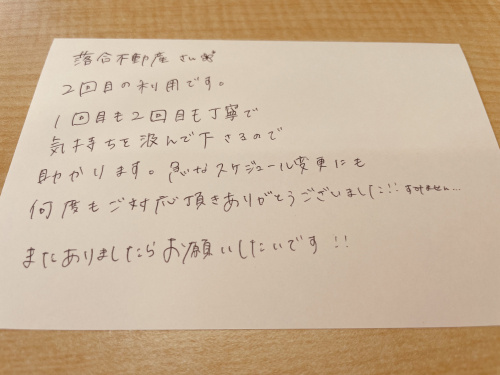 落合不動産さん
2回目の利用です。
1回目も2回目も丁寧で
気持ちを汲んで下さるので
助かります。急なスケジュール変更にも
何度もご対応頂きありがとうございました!! すみません…
またありましたらお願いしたいです!!